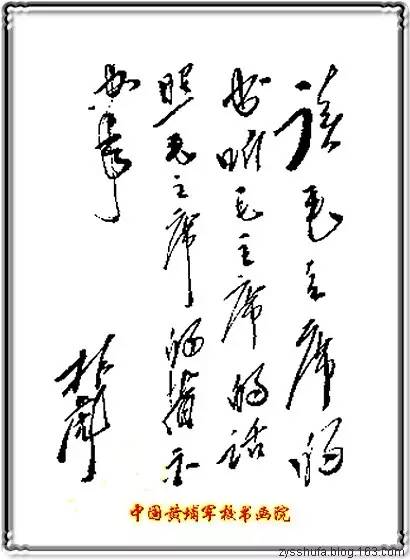 读毛主席的
书听毛主席的话
照毛主席的指示
办事
林彪
中国黄埔军校书画院
zysshufa.blog.163.com